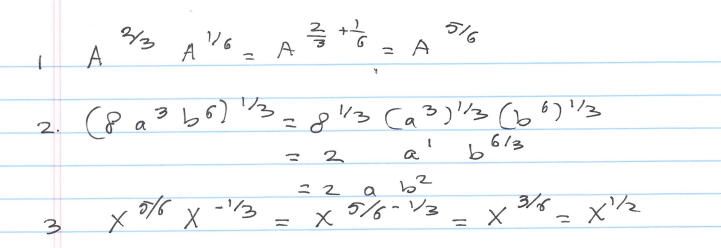 1 A^2/3 A^1/6 = A^(2/3 + 1/6) = A^5/6
2. (8 a^3 b^6)^1/3 = 8^1/3 (a^3)^1/3 (b^6)^1/3
= 2 a^1 b^6/3
= 2 a b^2
3 X^5/6 X^-1/3 = X^(5/6 - 1/3) = X^3/6 = X^1/2